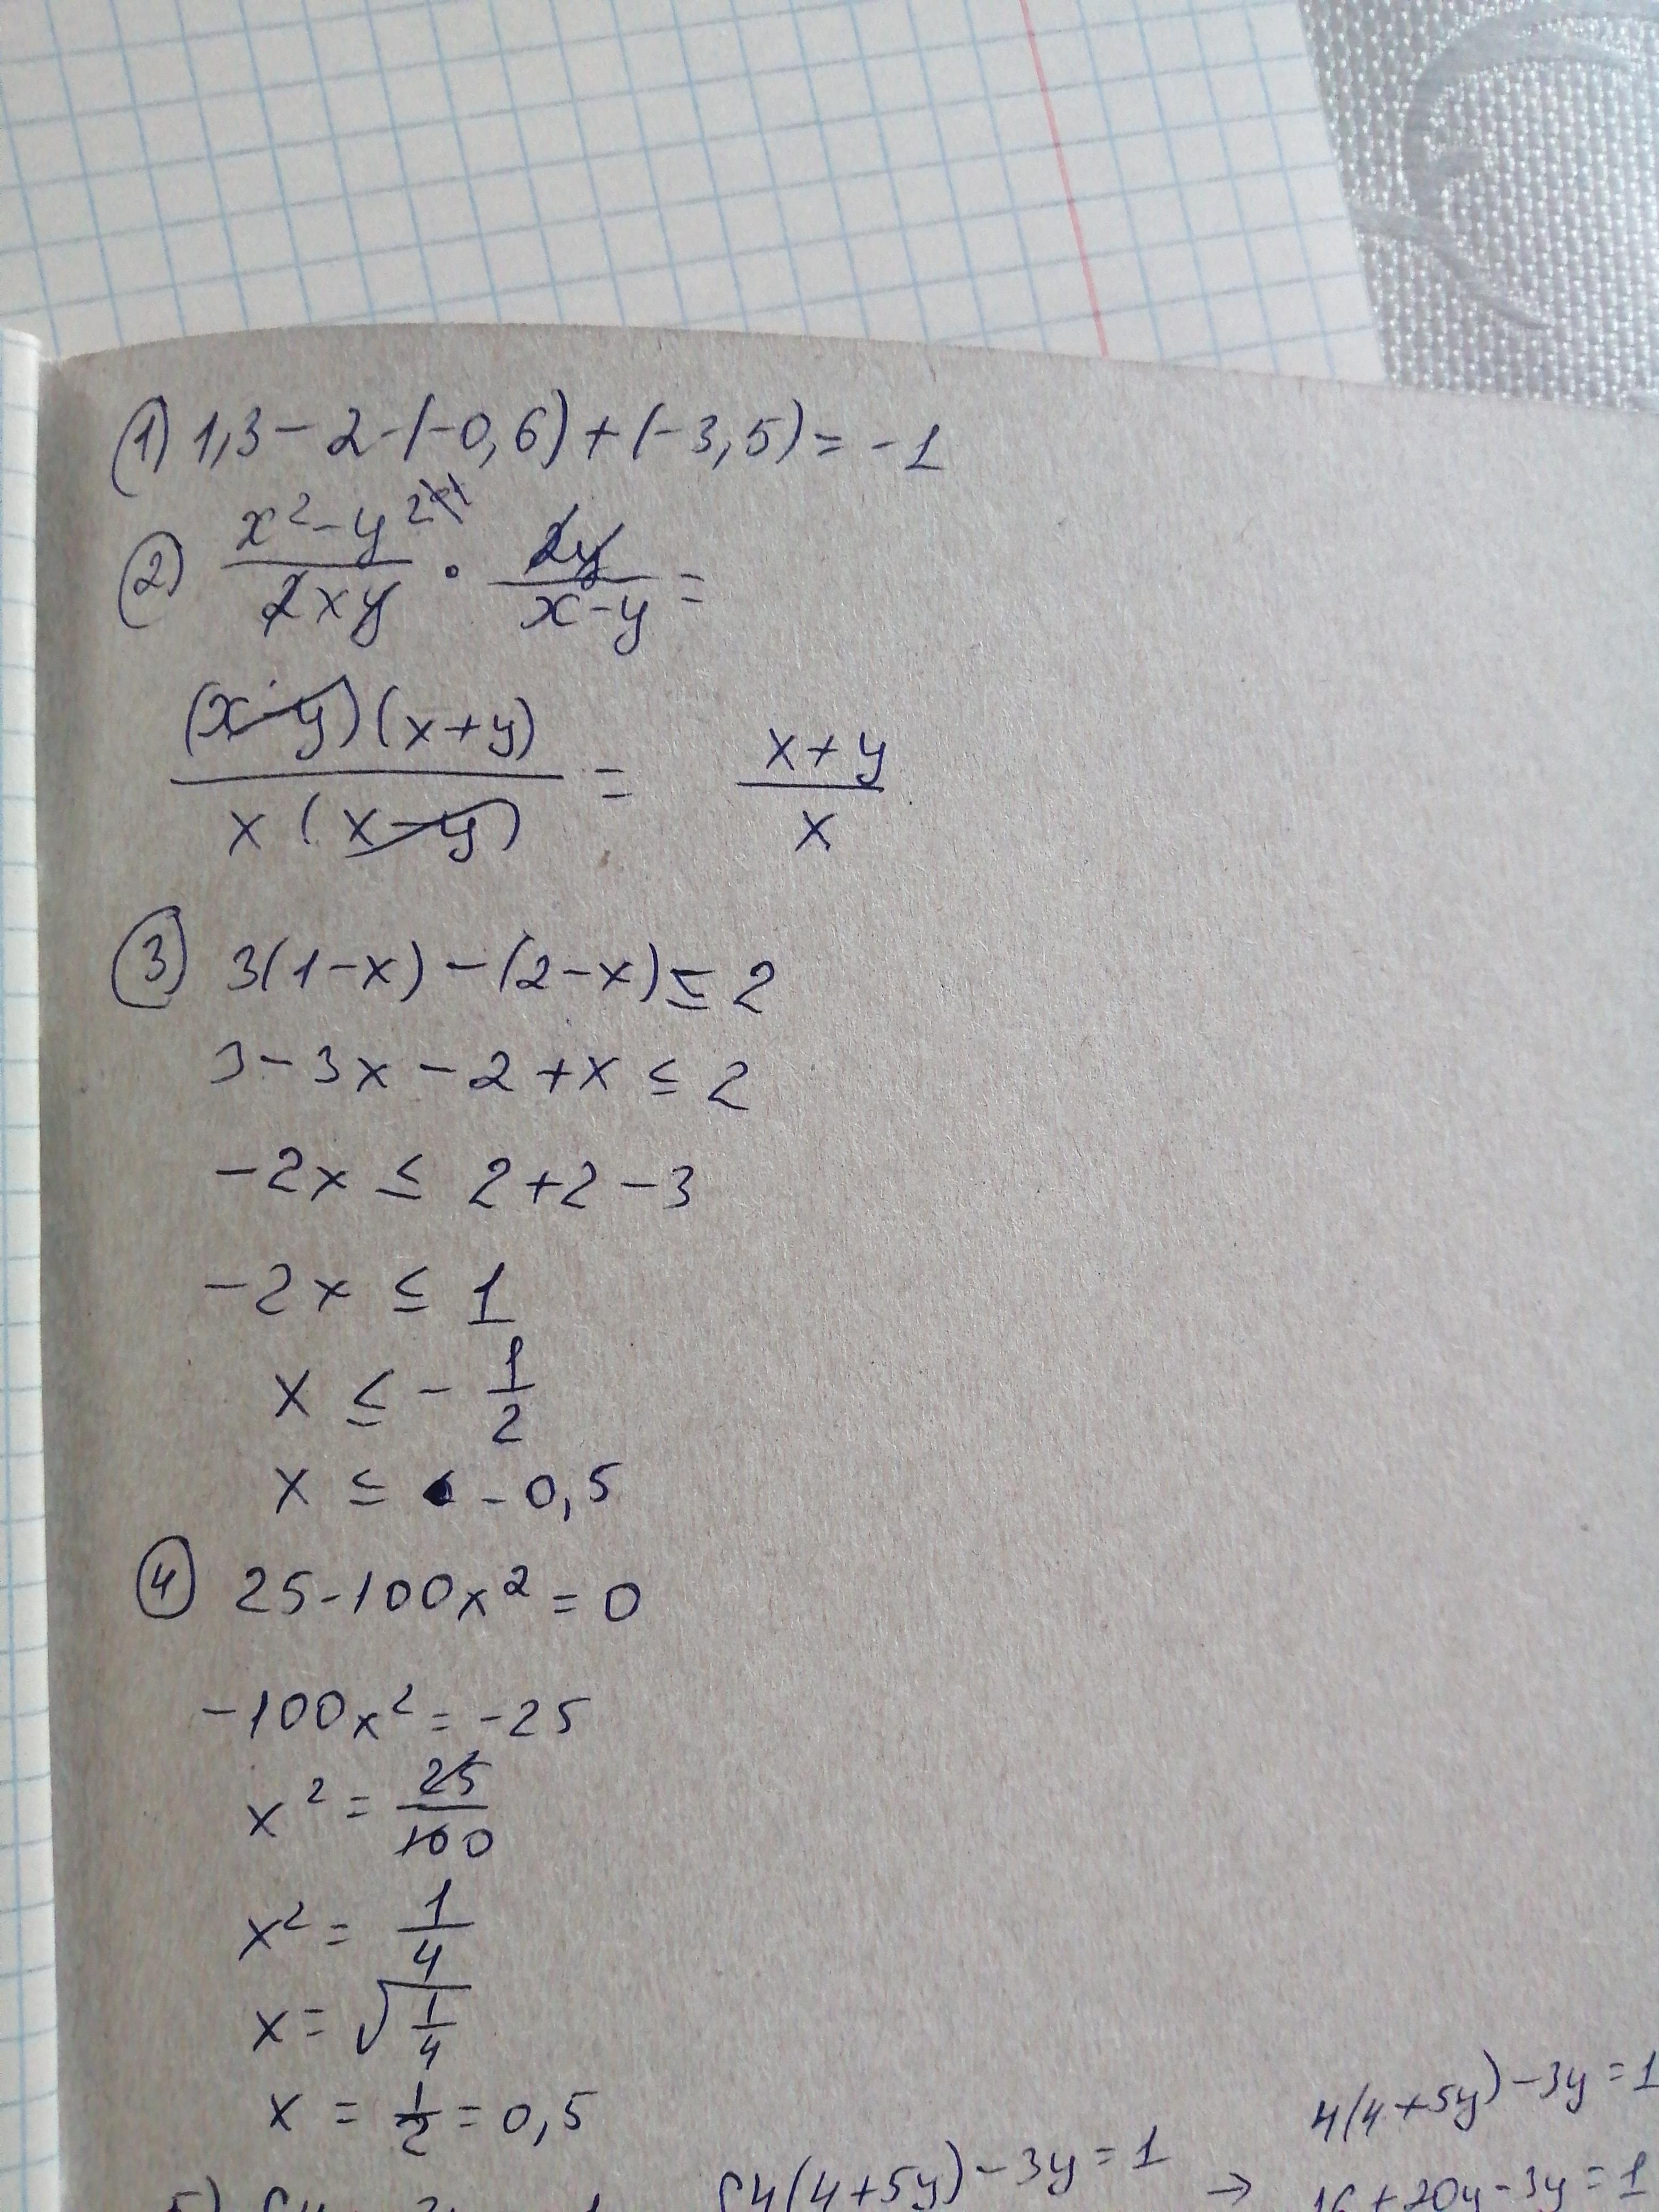 (1) 1,3 - 2 - (-0,6) + (-3,5) = -1
(2) (x² - y²)/(2xy) · (2y)/(x-y) =
((x-y)(x+y))/(x(x-y)) = (x+y)/x
(3) 3(1-x) - (2-x) ≤ 2
3 - 3x - 2 + x ≤ 2
-2x ≤ 2 + 2 - 3
-2x ≤ 1
x ≤ - 1/2
x ≤ -0,5
(4) 25 - 100x² = 0
-100x² = -25
x² = 25/100
x² = 1/4
x = √(1/4)
x = 1/2 = 0,5
4(4+5y) - 3y = 1
{4(4+5y) - 3y = 1 →
16 + 20y - 3y = 1